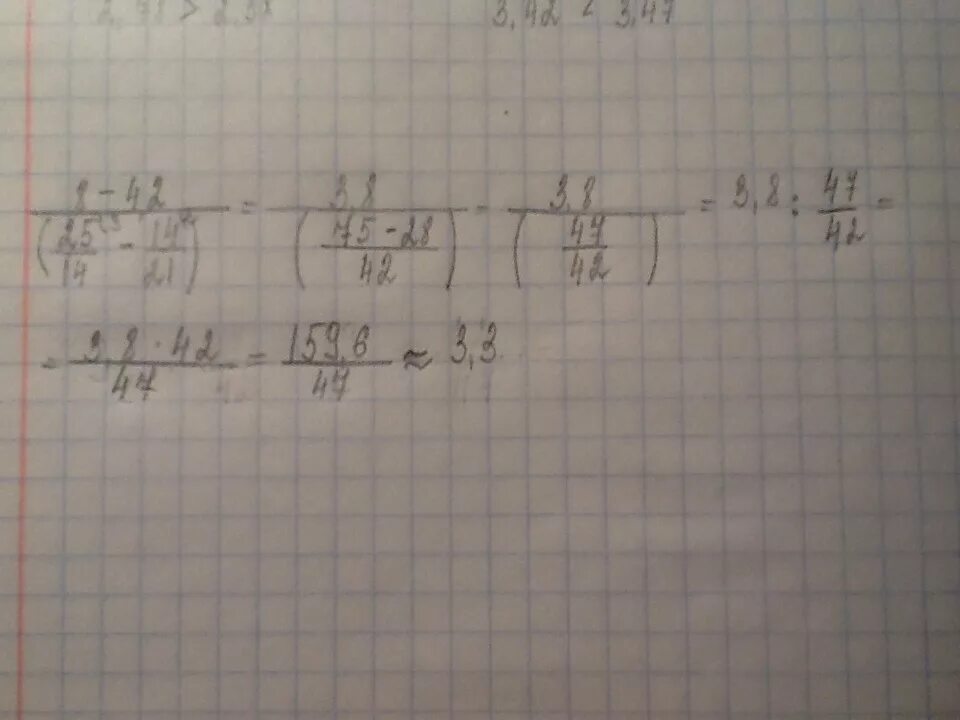 3,42 < 3,47
8 - 42 / (25/14 - 14/21) = 3,8 / ((75 - 28)/42) = 3,8 / (47/42) = 3,8 : 47/42 =
= 3,8 · 42 / 47 = 159,6 / 47 ≈ 3,3